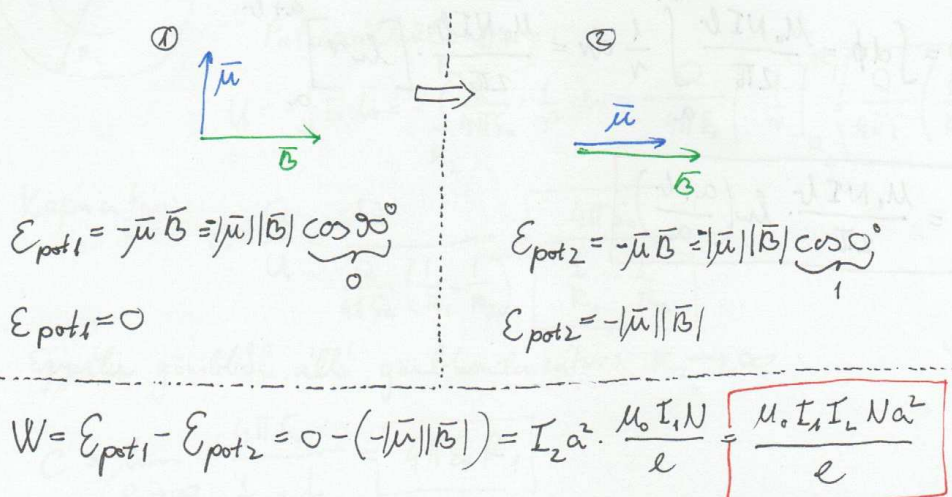 ① ②
μ̄ μ̄
B̄ B̄
Ɛpot1 = -μ̄ B̄ = -|μ̄||B̄| cos 90°
0
Ɛpot1 = 0
Ɛpot2 = -μ̄ B̄ = -|μ̄||B̄| cos 0°
1
Ɛpot2 = -|μ̄||B̄|
W = Ɛpot1 - Ɛpot2 = 0 - (-|μ̄||B̄|) = I₂a² · μ₀ I₁ N / ℓ = μ₀ I₁ I₂ N a² / ℓ